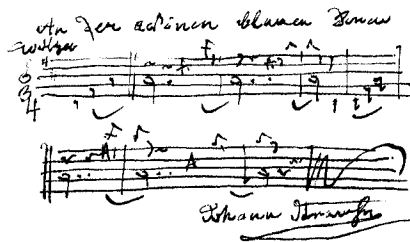 An der schönen blauen Donau
Walzer
3
4
Johann Strauss